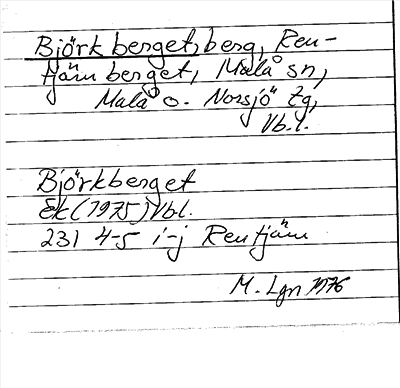 Björkberget, berg, Ren-
tjärnberget, Malå sn,
Malå o. Norsjö tg,
Vb.l.
Björkberget
Ek (1975) Vbl.
231 4-5 i-j Rentjärn
M. Lgn 1976